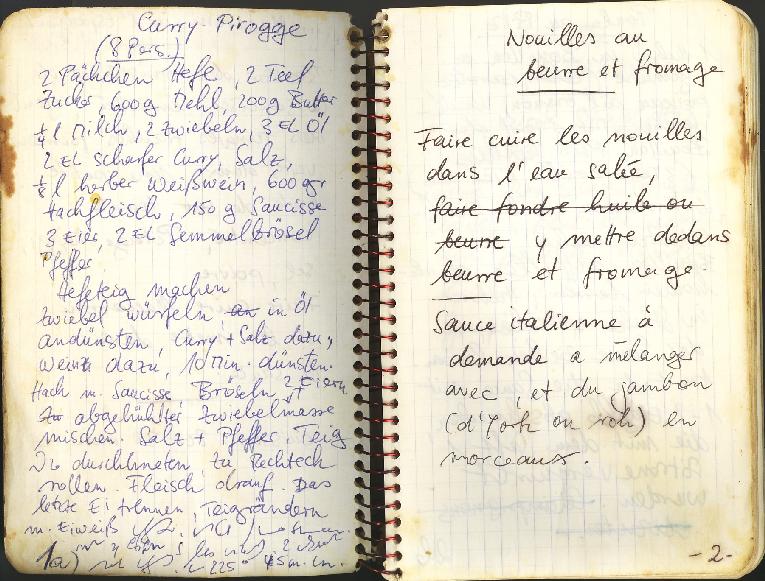 Curry-Pirogge
(8 Pers.)
2 Päckchen Hefe, 2 Teel
Zucker, 600g Mehl, 200g Butter
1/4 l Milch, 2 Zwiebeln, 3 EL Öl
2 EL scharfer Curry, Salz,
1/8 l herber Weißwein, 600gr
Hachfleisch, 150 g Saucisse
3 Eier, 2 EL Semmelbrösel
Pfeffer.
Hefeteig machen
Zwiebel würfeln an in Öl
andünsten, Curry + Salz dazu,
Wein dazu, 10 Min. dünsten.
Hach m. Saucisse, Bröseln, 2 Eiern
abgekühlter Zwiebelmasse
mischen. Salz + Pfeffer. Teig
durchkneten, zu Rechteck
rollen. Fleisch drauf. Das
letzte Ei trennen, Teigrändern
m. Eiweiß
1a) 225° 45 m.
Nouilles au
beurre et fromage
Faire cuire les nouilles
dans l'eau salée,
faire fondre huile ou
beurre y mettre dedans
beurre et fromage.
Sauce italienne à
demande a mélanger
avec, et du jambon
(d'York ou roh) en
morceaux.
-2-